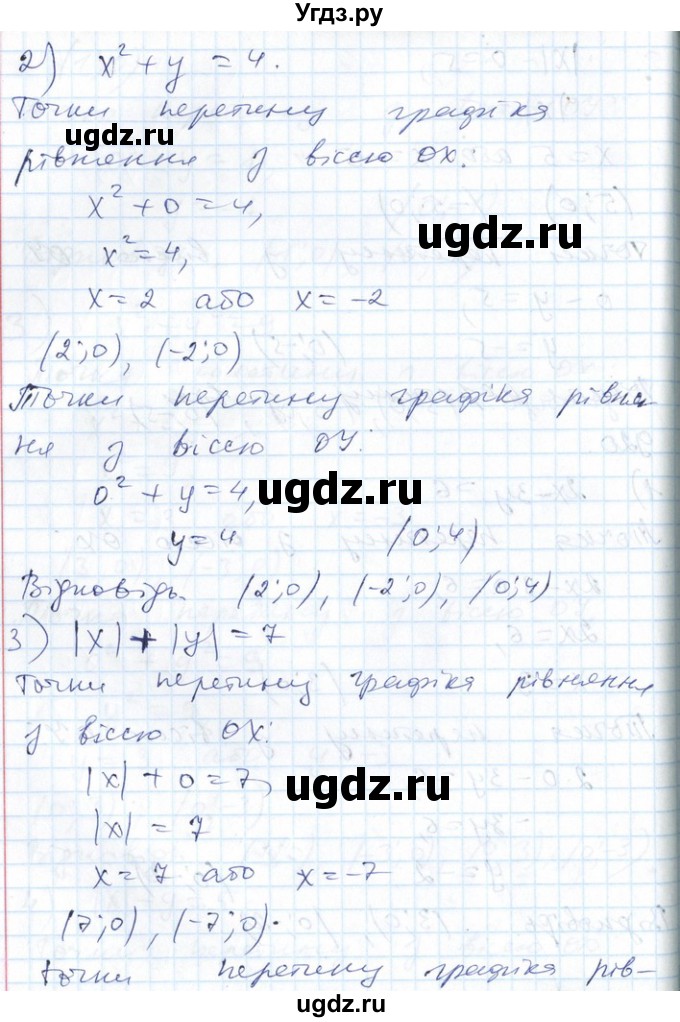 Угдз.ру
2) x² + y = 4.
Точки перетину графіка
ugdz.ru
рівняння з віссю OX:
x² + 0 = 4,
ugdz.ru
x² = 4,
x = 2 або x = -2
(2;0), (-2;0)
ugdz.ru
Точки перетину графіка рівня-
ня з віссю OY:
0² + y = 4,
ugdz.ru
y = 4 (0;4)
Відповідь. (2;0), (-2;0), (0;4)
ugdz.ru
3) |x| + |y| = 7
Точки перетину графіка рівняння
з віссю OX:
ugdz.ru
|x| + 0 = 7,
ugdz.ru
|x| = 7
x = 7 або x = -7
(7;0), (-7;0).
ugdz.ru
точки перетину графіка рів-
ugdz.ru